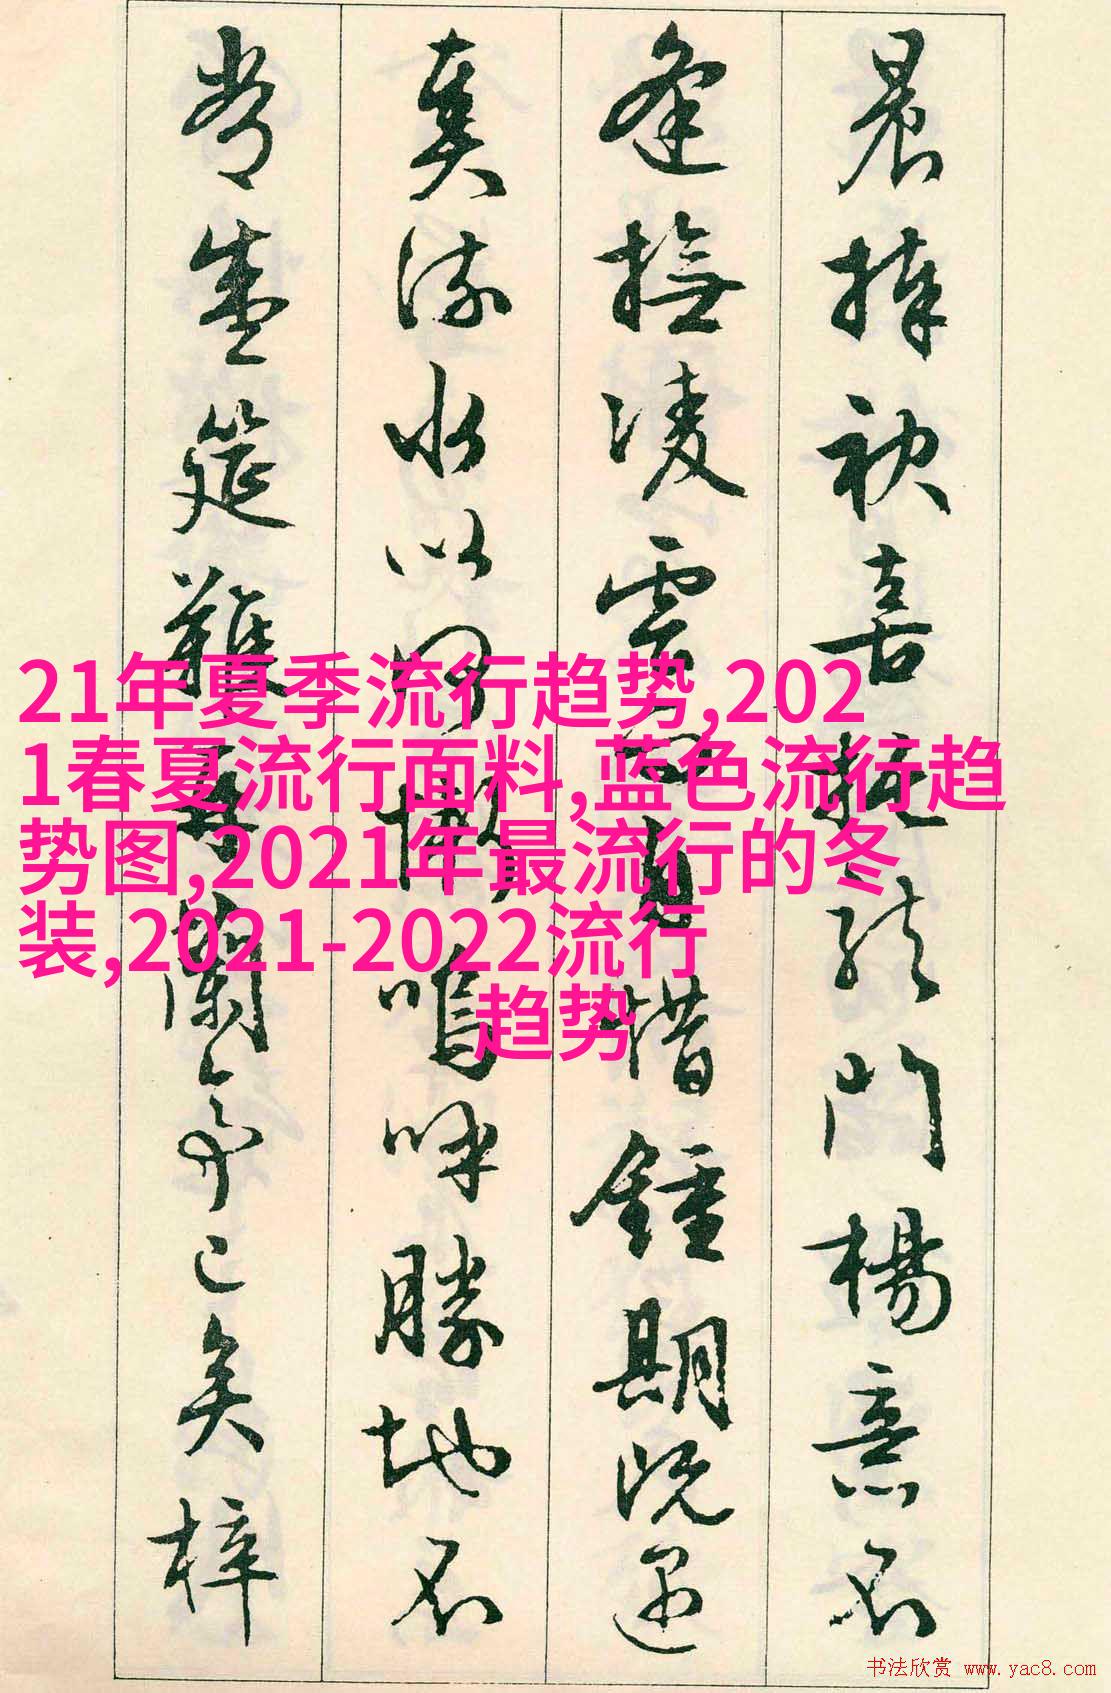 晨捧袂喜托龍門楊意不
逢撫凌雲而自惜鍾期既遇
奏流水以何慚嗚呼勝地不
常盛筵難再蘭亭已矣梓
21年夏季流行趋势,202
1春夏流行面料,蓝色流行趋
势图,2021年最流行的冬
装,2021-2022流行
趋势
书法欣赏 www.yac8.com